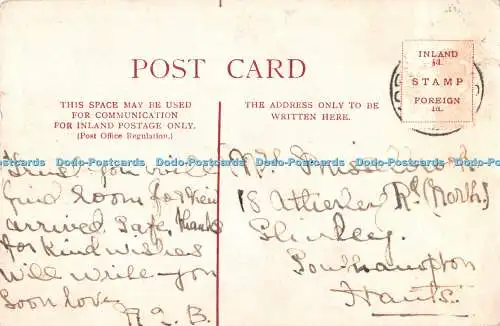 POST CARD
THIS SPACE MAY BE USED
FOR COMMUNICATION
FOR INLAND POSTAGE ONLY.
(Post Office Regulation.)
THE ADDRESS ONLY TO BE
WRITTEN HERE.
INLAND
½d.
STAMP
FOREIGN
1d.
Trust you will
find room for
arrived safe, thanks
for kind wishes
will write you
soon love
18 Rd (North)
Shirley
Southampton
Hants
Dodo-Postcards Dodo-Postcards Dodo-Postcards Dodo-Postcards Dodo-Postcards